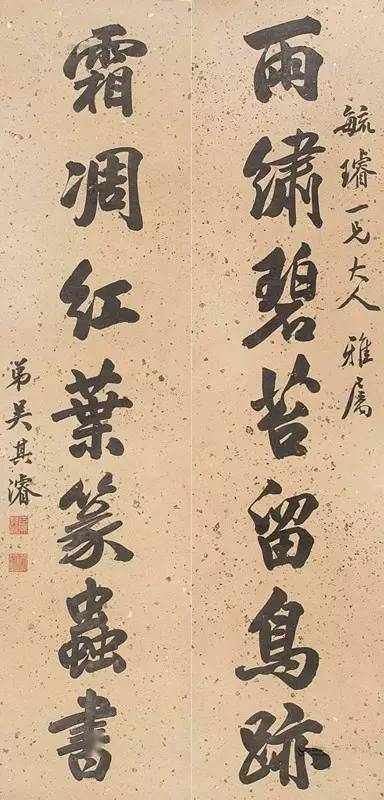 毓璿一兄大人雅属
雨繡碧苔留鳥跡
霜凋紅葉篆蟲書
弟吳其濬